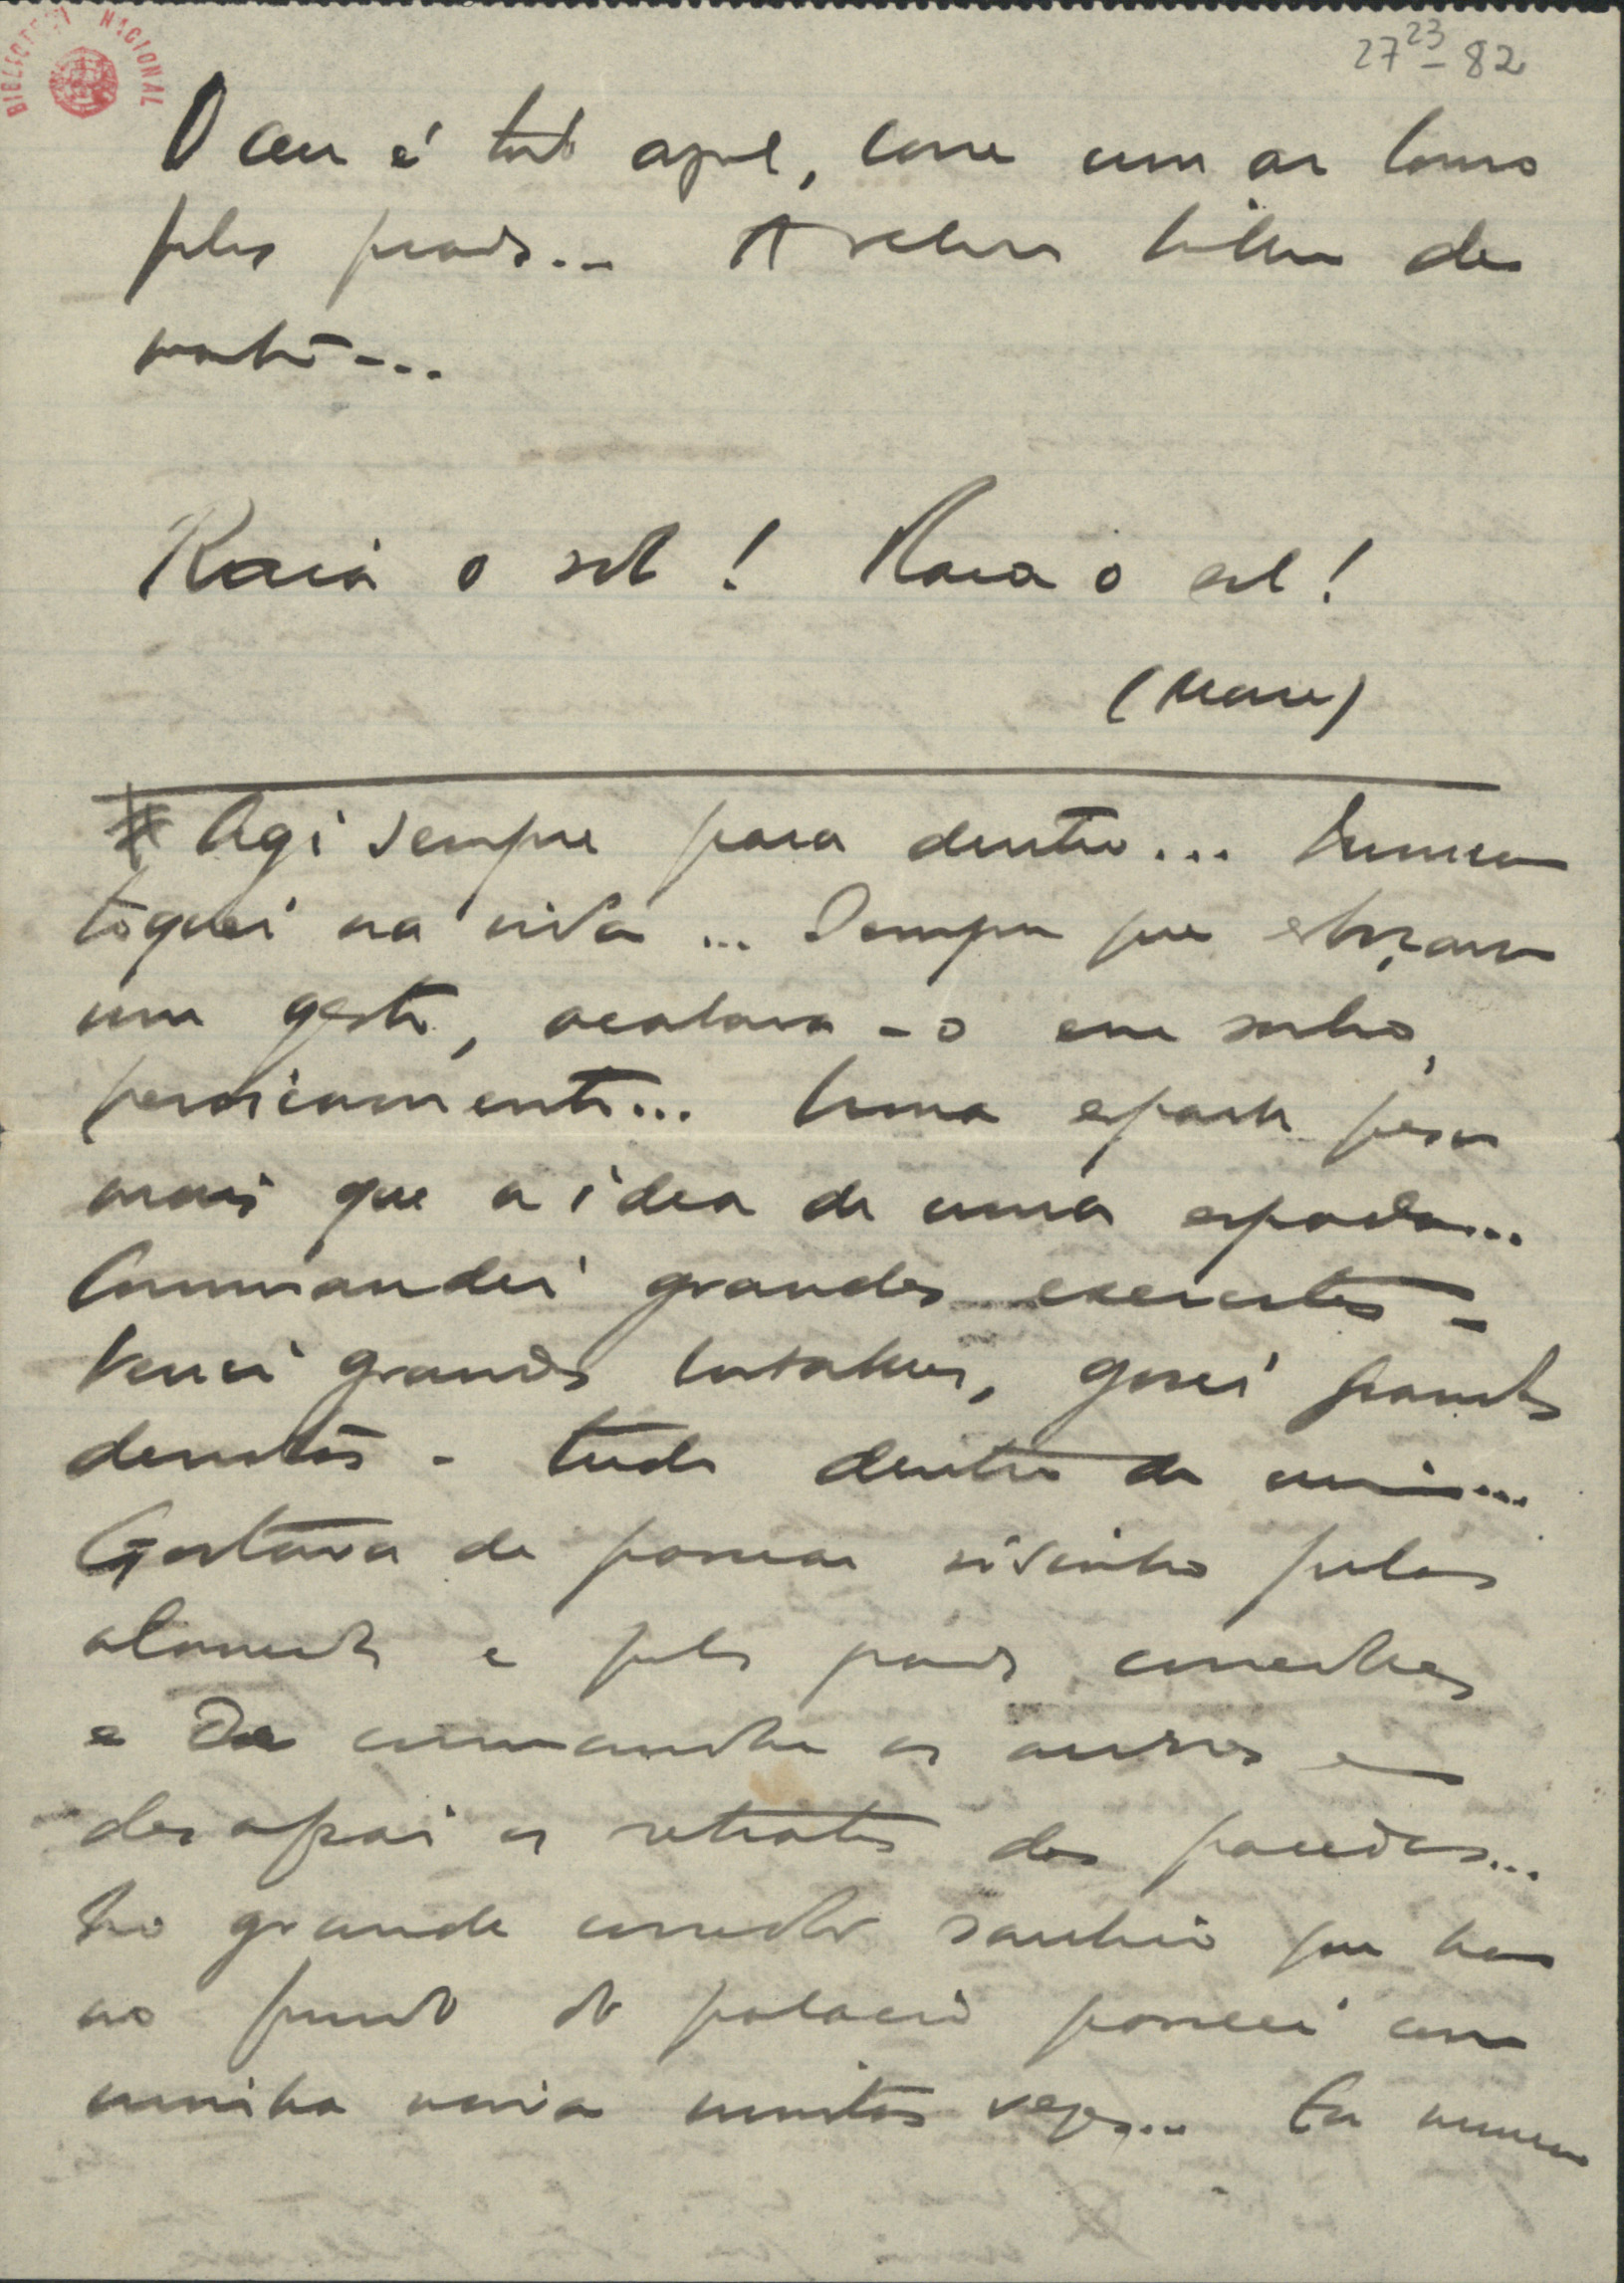 BIBLIOTECA NACIONAL
27²³-82
O ceu é todo azul, corre um ar louro
pelos prados... A relva brilha de
manhã...
Raia o sol! Raia o sol!
(Morre)
Agi sempre para dentro... Nunca
toquei na vida... Sempre que esboçava
um gesto, acabava-o em sonho,
heroicamente... Uma espada pesa
mais que a idea de uma espada...
Commandei grandes exercitos -
Venci grandes batalhas, gosei grandes
derrotas - tudo dentro de mim...
Gostava de passear sósinho pelas
alamedas e pelos grandes corredores
e de commandar as arvores e
desafiar os retratos das paredes...
No grande corredor sombrio que ha
ao fundo do palacio passeei com
minha noiva muitas vezes... Eu nunca